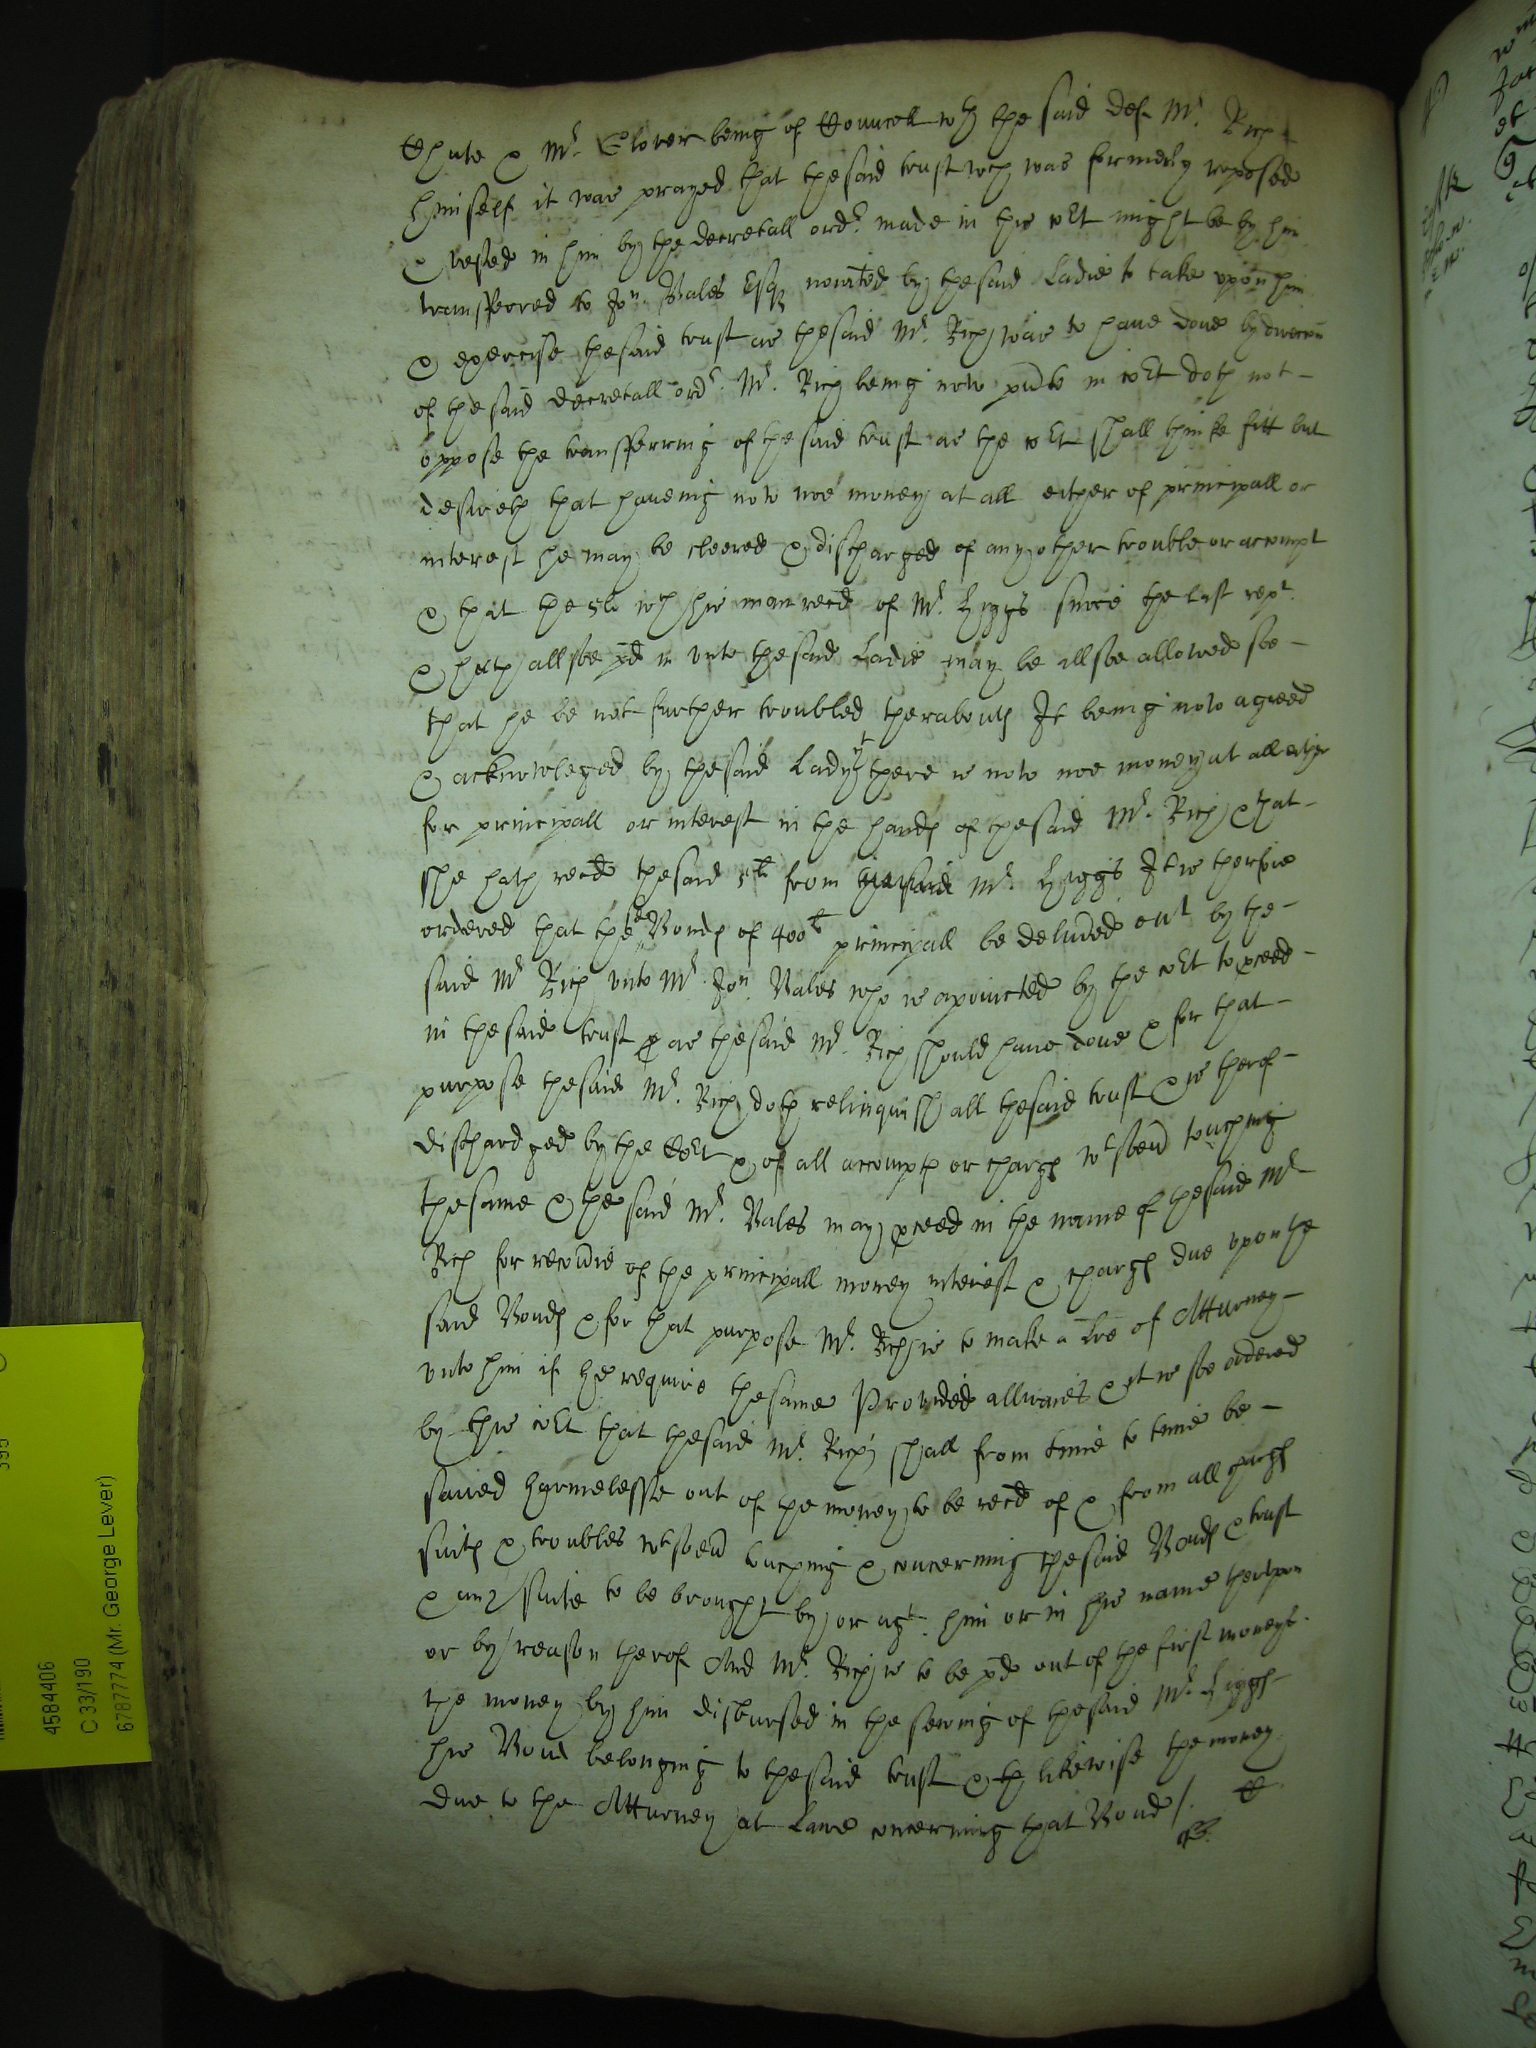 Chute & Mr. Glover being of Councell wth the said Deft Mr. Rich
himself it was prayed that the said trust wch was formerly reposed
& vested in him by the decretall ordr. made in this Cort might be by him
transferred to Jon. Vales Esqr noiated by the said Ladie to take upon him
& exercise the said trust as the said Mr. Rich was to have done by direccon
of the said decretall ordr. Mr. Rich being now pnte in Cort doth not
oppose the transferring of the said trust as the Cort shall thinke fitt but
desireth that haveing now noe money at all either of principall or
interest he may be cleered & discharged of any other trouble or accompt
& that the 5li wch his man recd of Mr. Higgs since the last rept.
& hath allsoe pd in unto the said Ladie may be allsoe allowed soe
that he be not further troubled therabouts It being now agreed
& acknowleged by the said Lady yt there is now noe money at all either
for principall or interest in the hands of the said Mr. Rich & that
she hath recd the said 5li from the said Mr. Higgs It is therfore
ordered that these Bonds of 400li principall be deliuered ouer by the
said Mr Rich unto Mr. Jon. Vales who is apointed by the Cort to pceed
in the said trust as the said Mr. Rich should have done & for that
purpose the said Mr. Rich doth relinquish all the said trust & is therof
dischardged by the Cort & of all accompts or charges wtsoeu touching
the same & the said Mr. Vales may pceed in the name of the said Mr
Rich for recouie of the principall money interest & charges due upon the
said Bonds & for that purpose Mr. Rich is to make a Lre of Atturney
unto him if he require the same Provided allwaies & it is soe ordered
by this Cort that the said Mr. Rich shall from time to time be
saued harmelesse out of the money to be recd of & from all charges
suits & troubles wtsoeu touching & concerning the said Bonds & trust
& any suite to be brought by or agt. him or in his name therupon
or by reason therof And Mr. Rich is to be pd out of the first moneys
the money by him disbursed in the sewing of the said Mr. Higgs
his Bond belonging to the said trust & likewise the money
due to the Atturney at Lawe concerning that Bond /.
4584406
C 33/190
6787774 (Mr. George Lever)